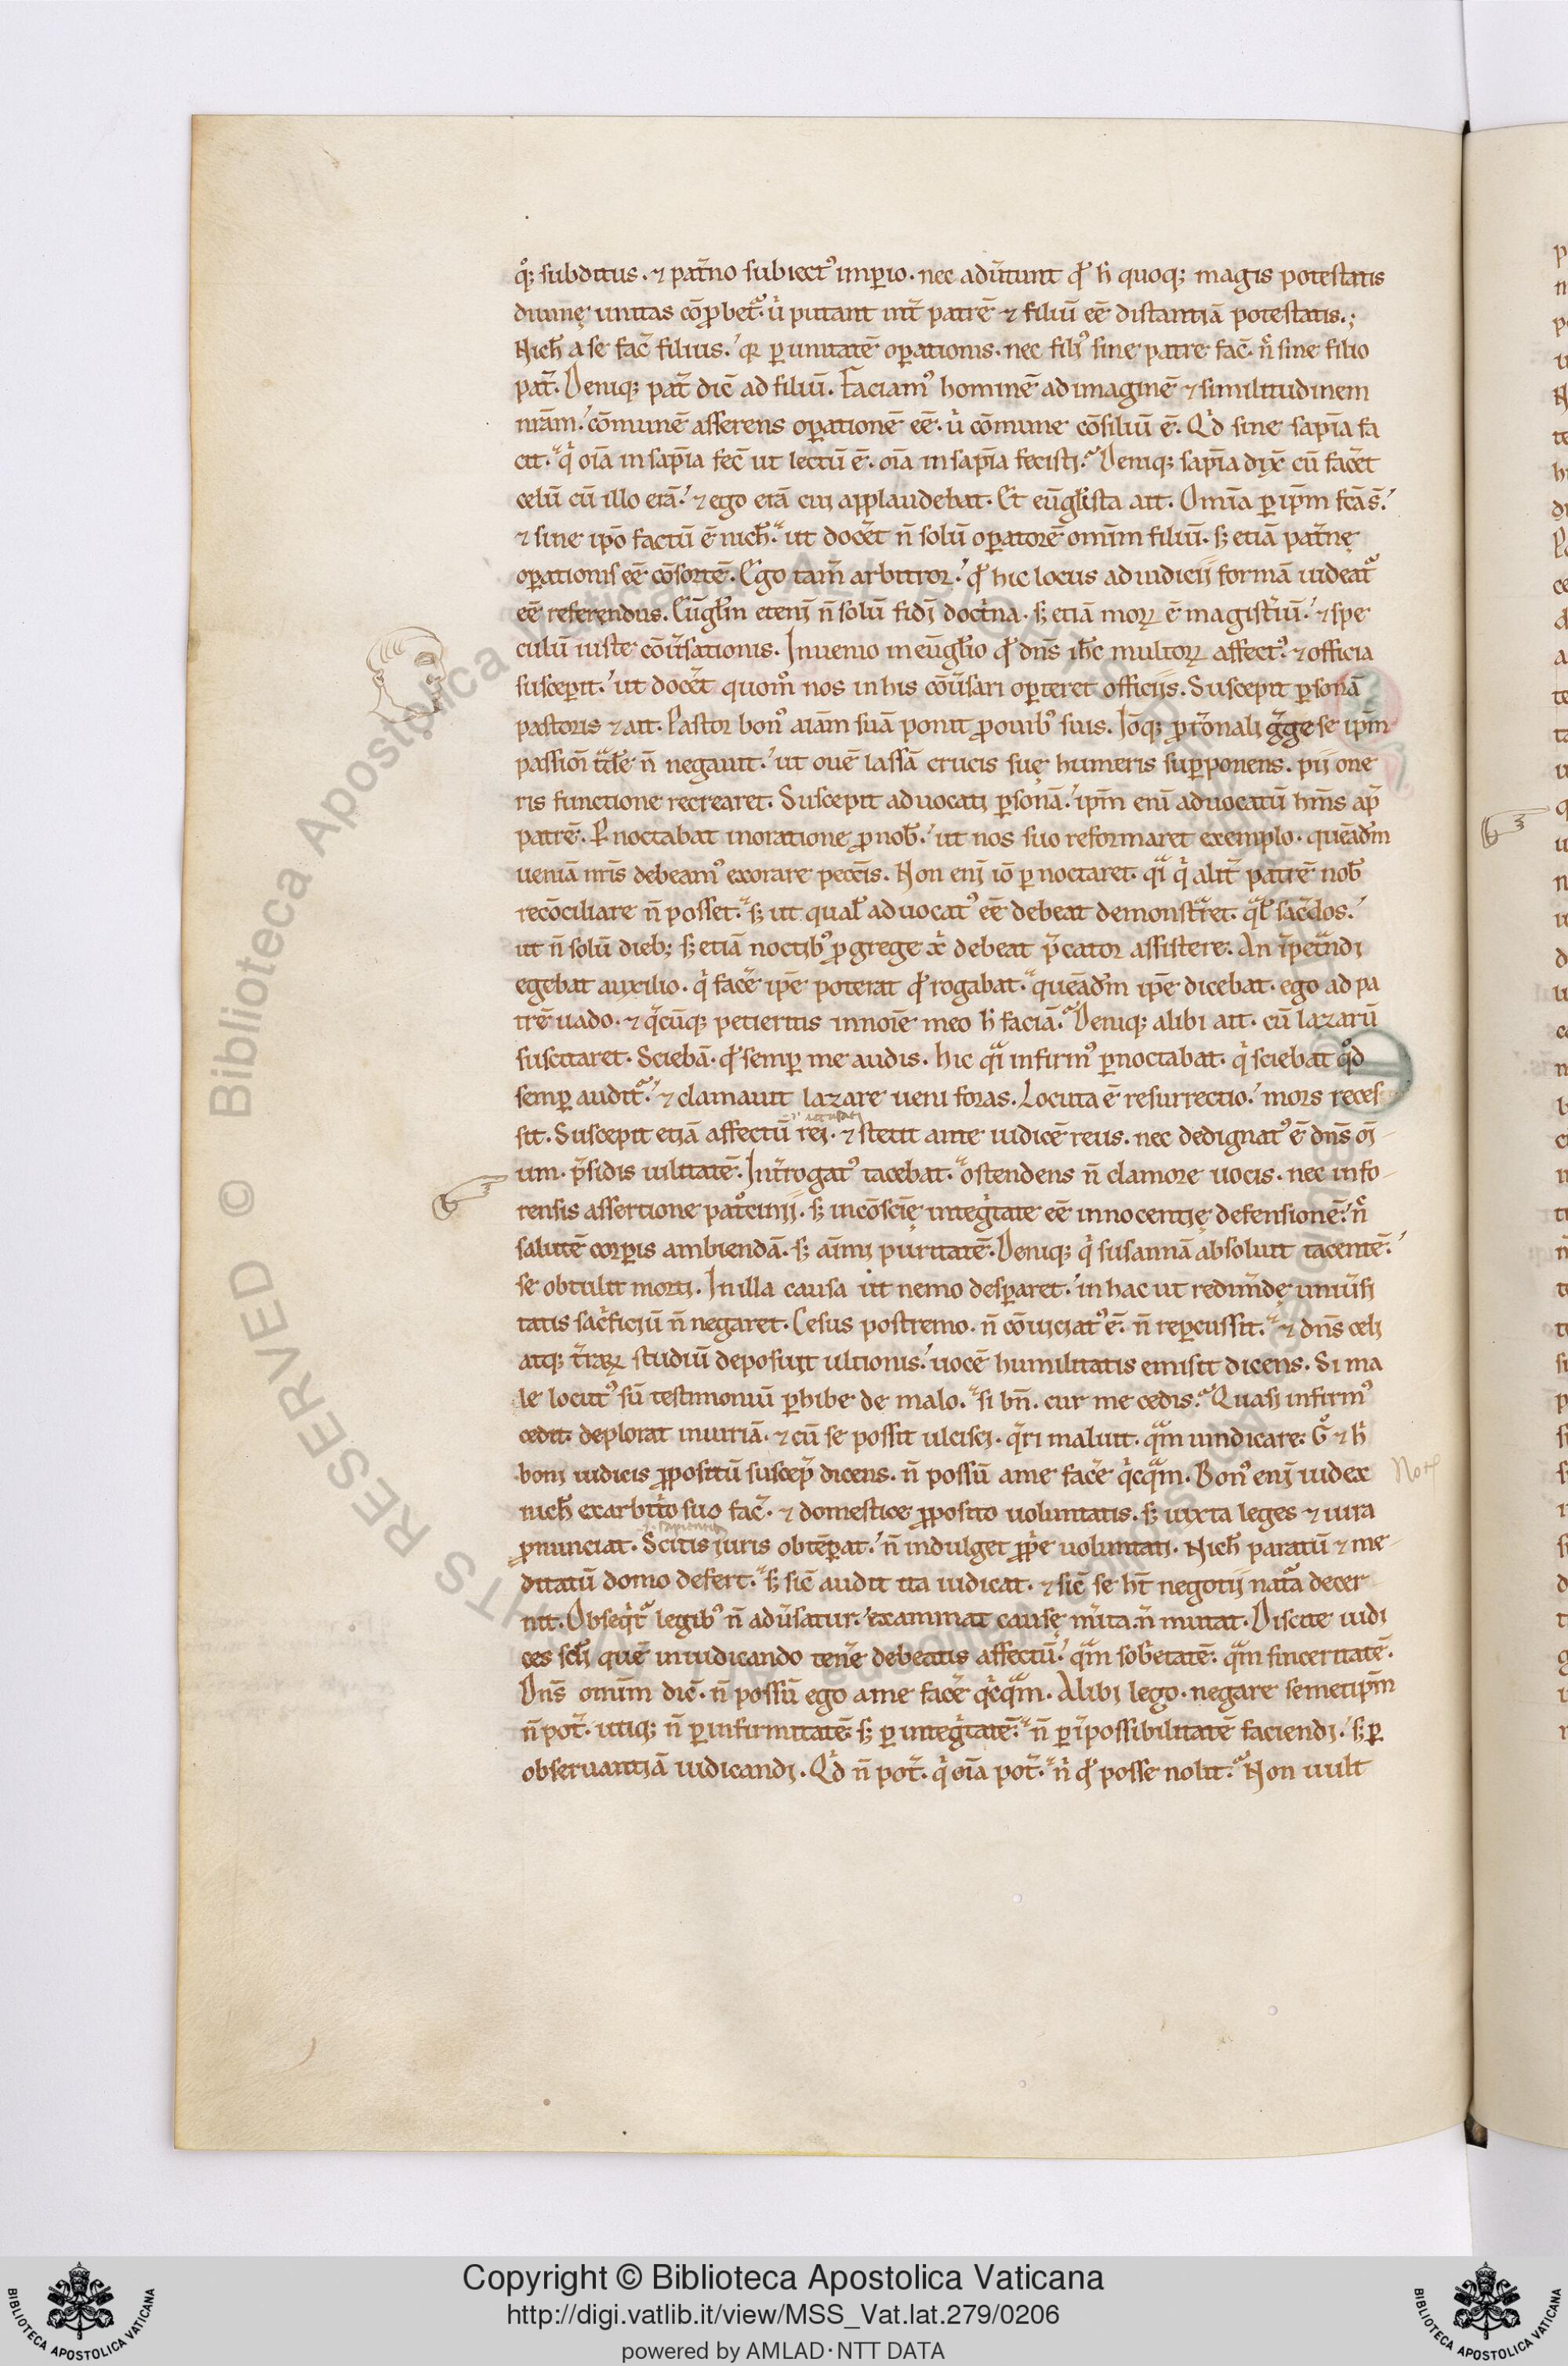 qͦ; subditus. ⁊ pat̃no subiectꝰ imꝑio. nec adũtunt qđ h̄ quoq; magis potestatis
diuinę unitas cō ꝓbet᷑. ů putant int̃ patrē ⁊ filiū eē distantiā potestatis.;
Nich̄ a se fac̃ filius. ꝑ unitatē oꝑationis. nec filiꝰ sine patre fac̃. n̄ sine filio
pat̃. Deniq; pat̃ dic̃ ad filiū. Faciamꝰ hominē ad imaginē ⁊ similitudinem
nr̄am. cōmunē asserens oꝑationē eē. ů cōmune cōsiliū ē. Qd sine sapīa fa
cit. q̇ oīa in sapīa fec̃ ut lectū ē. oīa in sapīa fecisti. Deniq; sapīa dix̃ cū fac̃et
celū cū illo erā. ⁊ ego erā cui applaudebat. Et eūgłista ait. Omīa ꝑ ip̄m fc̄a s̄.
⁊ sine ip̄o factū ē nich̄. ut doc̃et n̄ solū oꝑatorē omīm filiū. s; etiā pat̃nę
oꝑationis eē cōsortē. Ego tam̄ arbitror. qđ hic locus ad iudicii formā uideat᷑
eē referendus. Eūgłm etenī n̄ solū fidī doct̓na. s; etiā moꝝ ē magist̓iū. ⁊ spe
culū iuste cōũsationis. Inuenio in eūgłio qđ dn̄s ih̄c multoꝝ affectꝰ. ⁊ officia
suscepit. ut doc̃et quom̊ nos in his cōũsari oꝑteret officiis. Suscepit ꝑsonā
pastoris ⁊ ait. Pastor bonꝰ aīam suā ponit ꝓ ouibꝰ suis. Iōq; ꝓ rōnali g̃ge se ip̄m
passiōi negauit. ut ouē lassā crucis suę humeris suꝑponens. pii one
ris functione recrearet. Suscepit aduocati ꝑsonā. ip̄m enī aduocatū hm̄s ap̄
patrē. P noctabat in oratione ꝓ nob̄. ut nos suo reformaret exemplo. queād̄m
ueniā nr̄is debeamꝰ exorare pecc̄is. Non enī iō ꝑ noctaret. q̃i q̇ alit̃ patrē nob̄
recōciliare n̄ posset. s; ut qual̄ aduocatꝰ eē debeat demonst̃ret. q̃l̄ sac̃dos.
ut n̄ solū dieb; s; etiā noctibꝰ ꝓ grege x̄ debeat p̃cator assistere. An īpet̃ndi
egebat auxilio. q̇ fac̃e ip̄e poterat qđ rogabat. queād̄m ip̄e dicebat. ego ad pa
trē uado. ⁊ q̃cūq; petieritis in noīe meo h̄ faciā. Deniq; alibi ait. cū lazarū
suscitaret. Sciebā. qđ semꝑ me audis. Hic q̃i infirmꝰ ꝑnoctabat. q̇ sciebat qͦd
semꝑ audit᷑. ⁊ clamauit lazare ueni foras. Locuta ē resurrectio. mors reces
sit. Suscepit etiā affectū rei. ⁊ stetit ante iudicē reus. nec dedignatꝰ ē dn̄s oī
um. p̃sidis uilitatē. Int̃rogatꝰ tacebat. ostendens n̄ clamore uocis. nec in fo
rensis assertione patͦcinii. s; in cōsciē integ̓tate eē innocentię defensionē. n̄
salutē corꝑis ambiendā. s; aīmi puritatē. Deniq; q̇ susannā absoluit tacentē.
se obtulit morti. In illa causa ut nemo desꝑaret. in hac ut redim̄dę uniũsi
tatis sac̓ficiū n̄ negaret. Cesus postremo. n̄ cōuiciatꝰ ē. n̄ reꝑcussit. ⁊ dn̄s celi
atq; t̃raꝝ studiū deposuit ultionis. uocē humilitatis emisit dicens. Si ma
le locutꝰ sū testimoniū ꝑhibe de malo. si bn̄. cur me cedis. Quasi infirmꝰ
cedit. deplorat iniuriā. ⁊ cū se possit ulcisci. q̃ri maluit. q̃m uindicare. Gͦ ⁊ h̄
boni iudicis ꝓpositū suscep̃ dicens. n̄ possū a me fac̃e q̇cq̃m. Bonꝰ enī iudex
nich̄ ex arbit̓io suo fac̃. ⁊ domestice ꝓposito uoluntatis. s; iuxta leges ⁊ iura
ꝓnunciat. Scitis iuris obtēꝑat. n̄ indulget ꝓp̓e uoluntati. Nich̄ paratū ⁊ me
ditatū domo defert. s; sic̃ audit ita iudicat. ⁊ sic̃ se ht̄ negotii nat᷑a decer
nit. Obseq̇t᷑ legibꝰ n̄ adũsatur. examinat causę m̃ita. n̄ mutat. Discite iudi
ces sc̄li quē in iudicando ten̄e debeatis affectū. q̃m sob̓etatē. q̃m sinceritatē.
Dn̄s omīm dic̃. n̄ possū ego a me fac̃e q̇cq̃m. Alibi lego. negare semetip̄m
n̄ pot̃. utiq; n̄ ꝑ infirmitatē. s; ꝑ integ̓tatē. n̄ ꝑ īpossibilitatē faciendi. s; ꝑ
obseruantiā iudicandi. Qd n̄ pot̃. q̇ oīa pot̃. n̄ qđ posse nolit. Non uult
Not
© Biblioteca Apostolica Vaticana ALL RIGHTS RESERVED
Copyright © Biblioteca Apostolica Vaticana
http://digi.vatlib.it/view/MSS_Vat.lat.279/0206
powered by AMLAD·NTT DATA
BIBLIOTECA APOSTOLICA VATICANA
BIBLIOTECA APOSTOLICA VATICANA